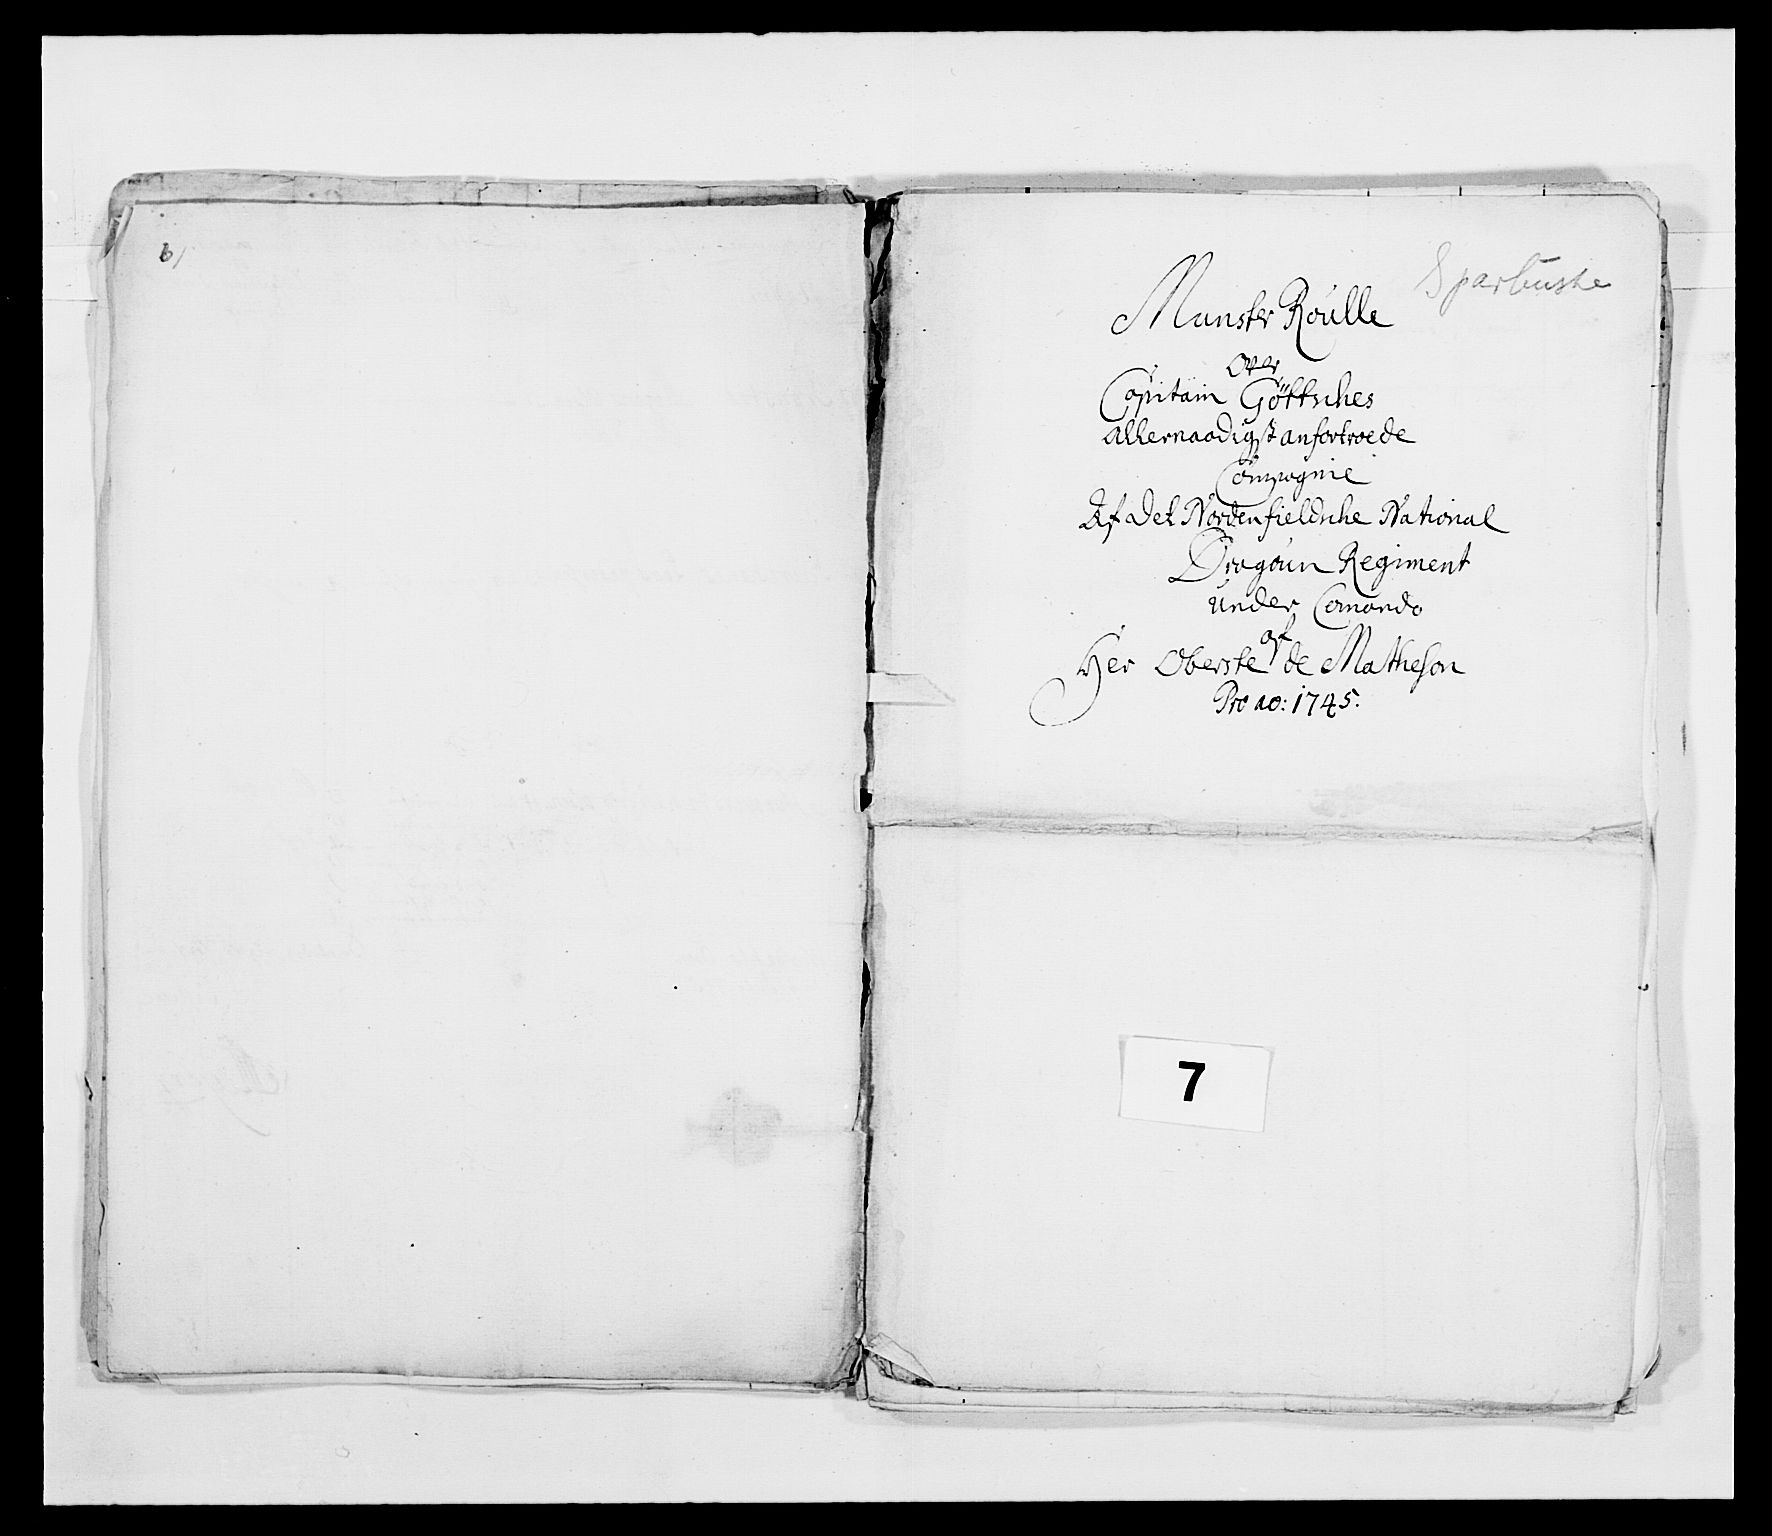 6/
Sparbuske
Munster Roulle
Over
Capitain Göttsches
Allernaadigst anfortroede
Compagnie
Af det Nordenfieldsche National
Dragoun Regiment
under Comando
af
Her Oberste de Matheson
Pro ao: 1745.
7